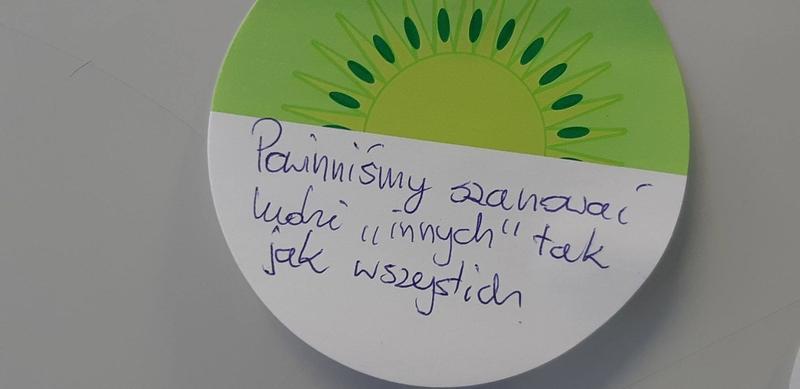 Powinniśmy szanować
ludzi „innych“ tak
jak wszystich